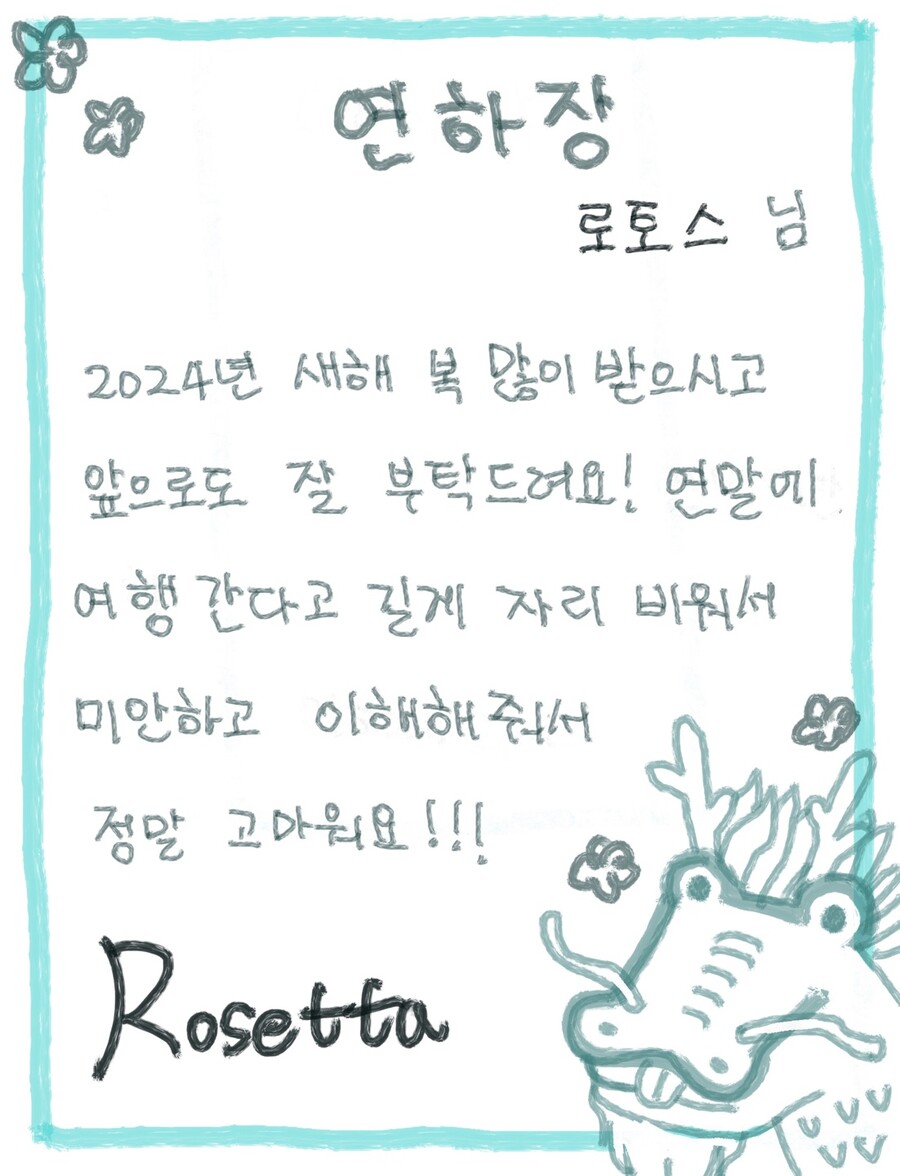 연하장
로토스 님
2024년 새해 복 많이 받으시고
앞으로도 잘 부탁드려요! 연말에
여행 간다고 길게 자리 비워서
미안하고 이해해줘서
정말 고마워요!!!
Rosetta